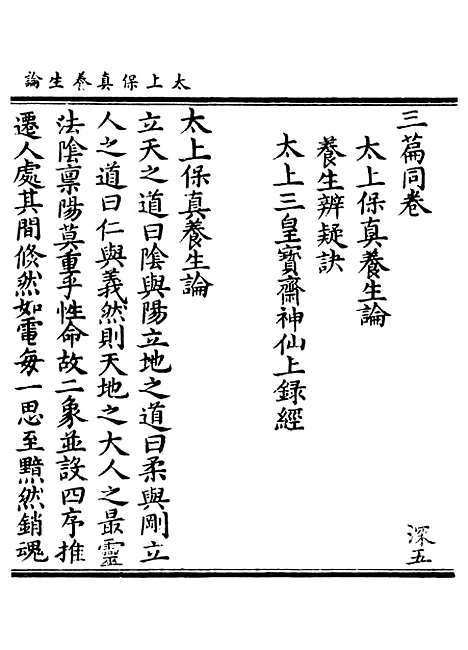 太上保真養生論
三篇同卷
深五
太上保真養生論
養生辨疑訣
太上三皇寳齋神仙上録經
太上保真養生論
立天之道曰陰與陽立地之道曰柔與剛立
人之道曰仁與義然則天地之大人之最靈
法陰禀陽莫重乎性命故二象並設四序推
遷人處其間倐然如電每一思至黯然銷魂